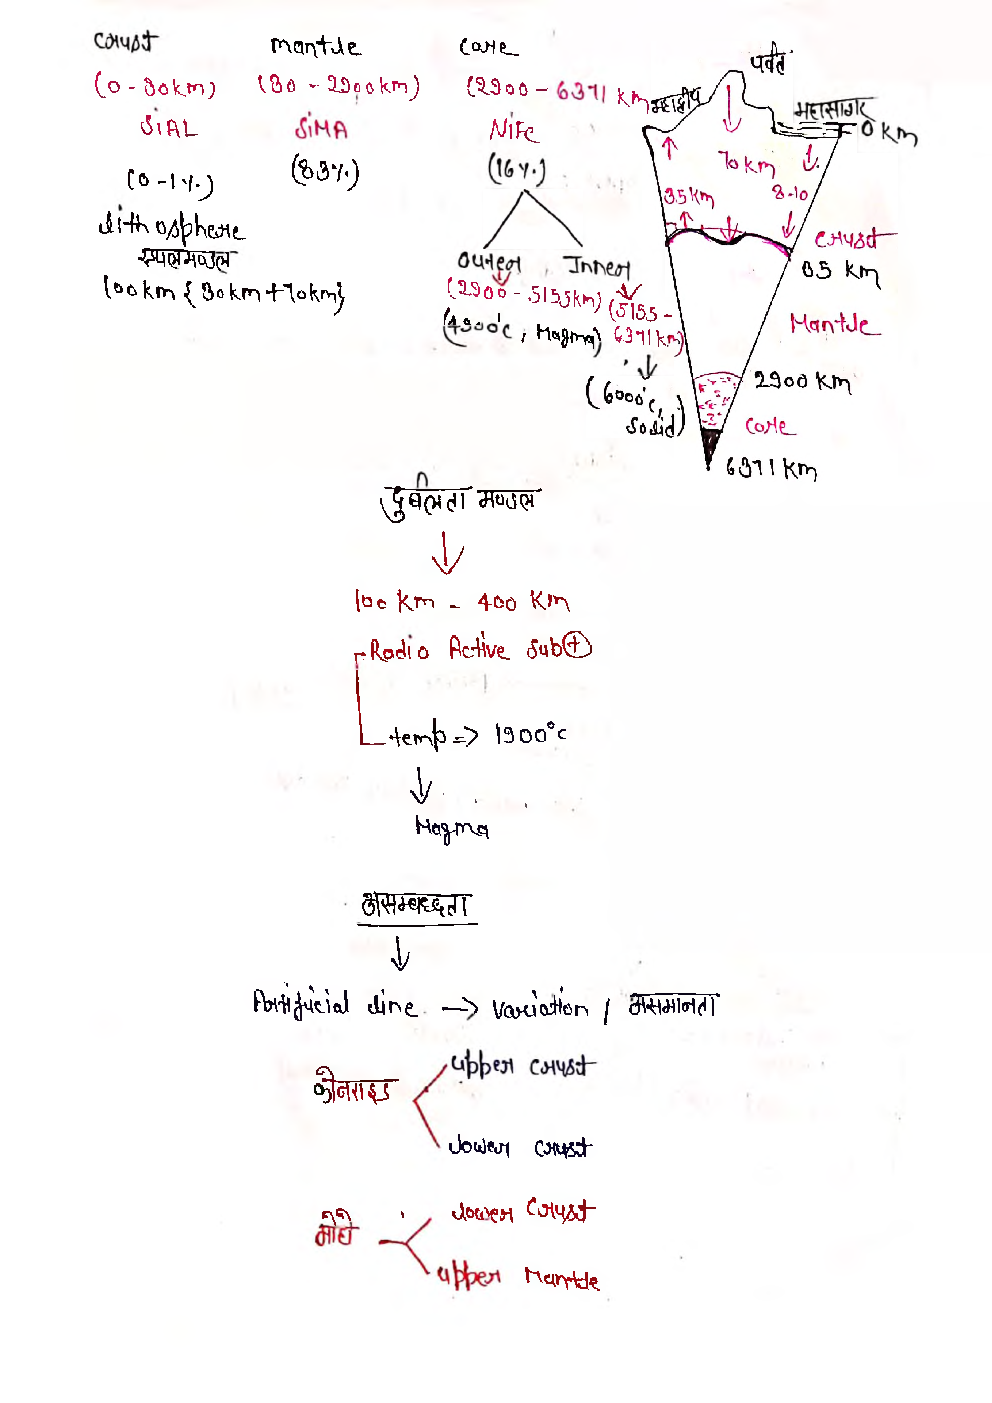 crust
(0-30km)
SiAL
(0-1%)
Lithosphere
स्थलमण्डल
100km {30km+70km}
mantle
(30 - 2900km)
SiMA
(83%)
core
(2900 - 6371 km)
Nife
(16%)
Outner
(2900 - 5155km)
(4900°c, Magma)
Inner
(5155 -
6371km)
(6000°c,
solid)
पर्वत
महाद्वीप
महासागर
0 km
70 km
35km
8-10
crust
35 km
Mantle
2900 km
core
6371 km
दुर्बलता मण्डल
100 km - 400 km
Radio Active Sub
temp => 1900°c
Magma
असम्बद्धता
Artificial line -> variation / असमानता
कौनराइड
upper crust
lower crust
मोहो
lower crust
upper Mantle